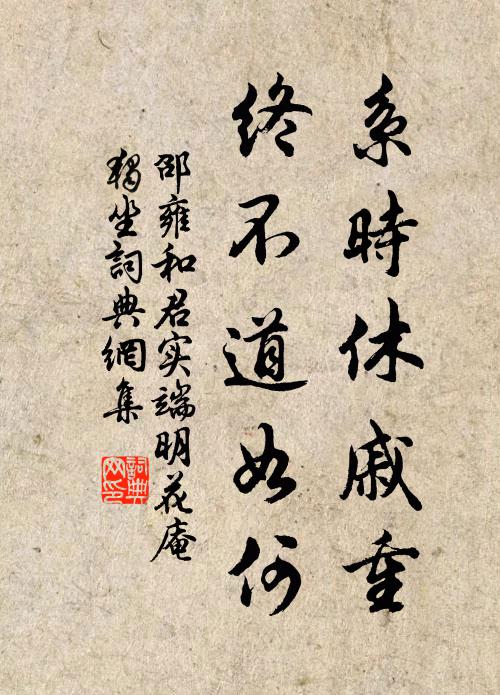 系時休戚重
終不道如何
邵雍和君实端明花庵
獨坐詞典網集
詞典网印